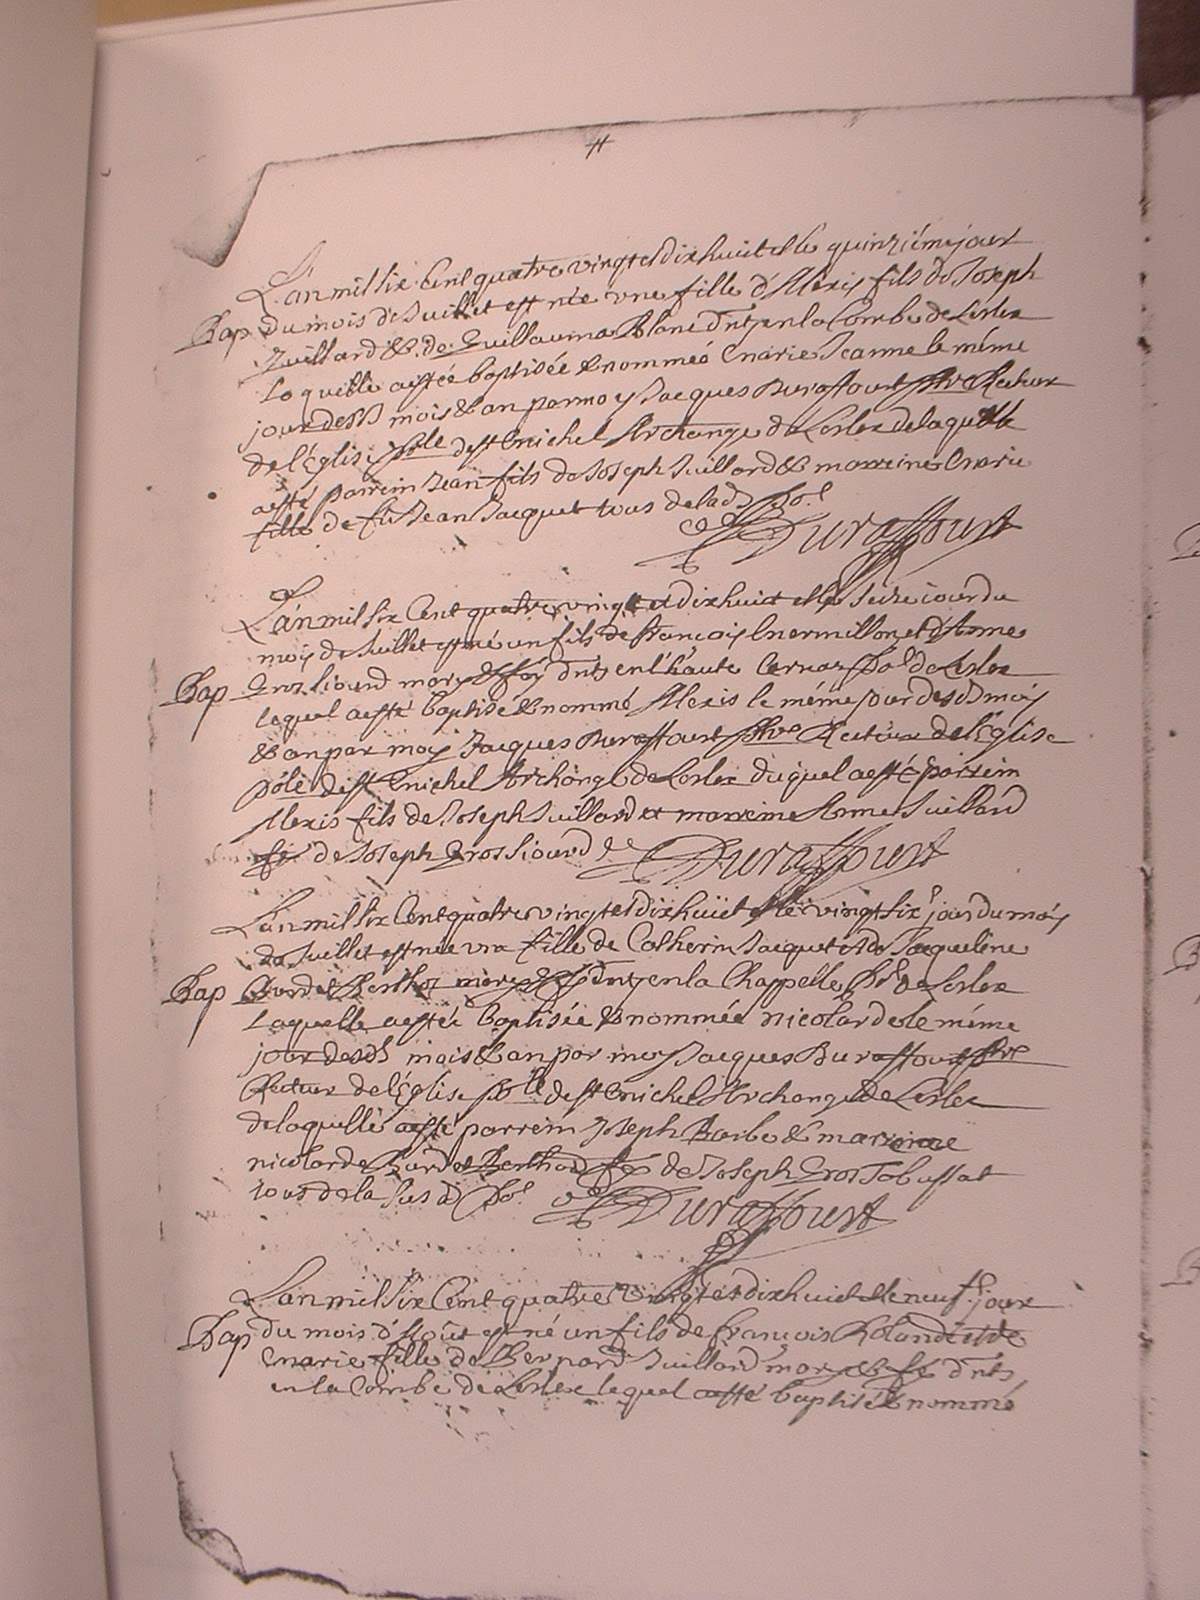 L'an mil six Cent quatre vingt et dix huict et le quinziéme jour
Bap du mois de Juillet est née une fille d'Alexis fils de Joseph
Juillard & de Guillauma Blanc d'nts en la Combe de Lesler
laquelle a esté baptisée & nommée Marie Jeanne le méme
jour desd mois & an par moy Jacques Duraffourt ptre Recteur
de l'Église polle de st Michel Archange de Lesler de laquelle
a esté parrein Jean fils de Joseph Juillard & marreine Marie
fille de fû Jean Jacquet tous de lad pol
Duraffourt
L'an mil six Cent quatre vingt et dix huict et le seize jour du
mois de Juillet est né un fils de françois Mermillon et d'Anne
Bap Grossiourd d'nts en l'haute Cernaz pol de Lesler
lequel a esté baptisé & nommé Alexis le méme jour desd mois
& an par moy Jacques Duraffourt ptre Recteur de l'Église
polle de st Michel Archange de Lesler duquel a esté parrein
Alexis fils de Joseph Juillard et marreine Anne Juillard
fe de Joseph Grossiourd
Duraffourt
L'an mil six Cent quatre vingt et dix huict et le vingt six jour du mois
de Juillet est née une fille de Catherin Jacquet et de Jacqueline
Bap Burdet Berthoz d'nts en la Chappelle pol de Lesler
laquelle a esté baptisée & nommée nicolarde le méme
jour desd mois & an par moy Jacques Duraffourt ptre
Recteur de l'Église polle de st Michel Archange de Lesler
de laquelle a esté parrein Joseph Barbe & marreine
nicolarde Burdet Berthod fe de Joseph Gros Tabussat
tous de la susd pol
Duraffourt
L'an mil six Cent quatre vingt et dix huict et le neuf jour
Bap du mois d'Aoüt est né un fils de françois Roland et de
Marie fille de Bernard Juillard d'nts
en la Combe de Lesler lequel a esté baptisé & nommé